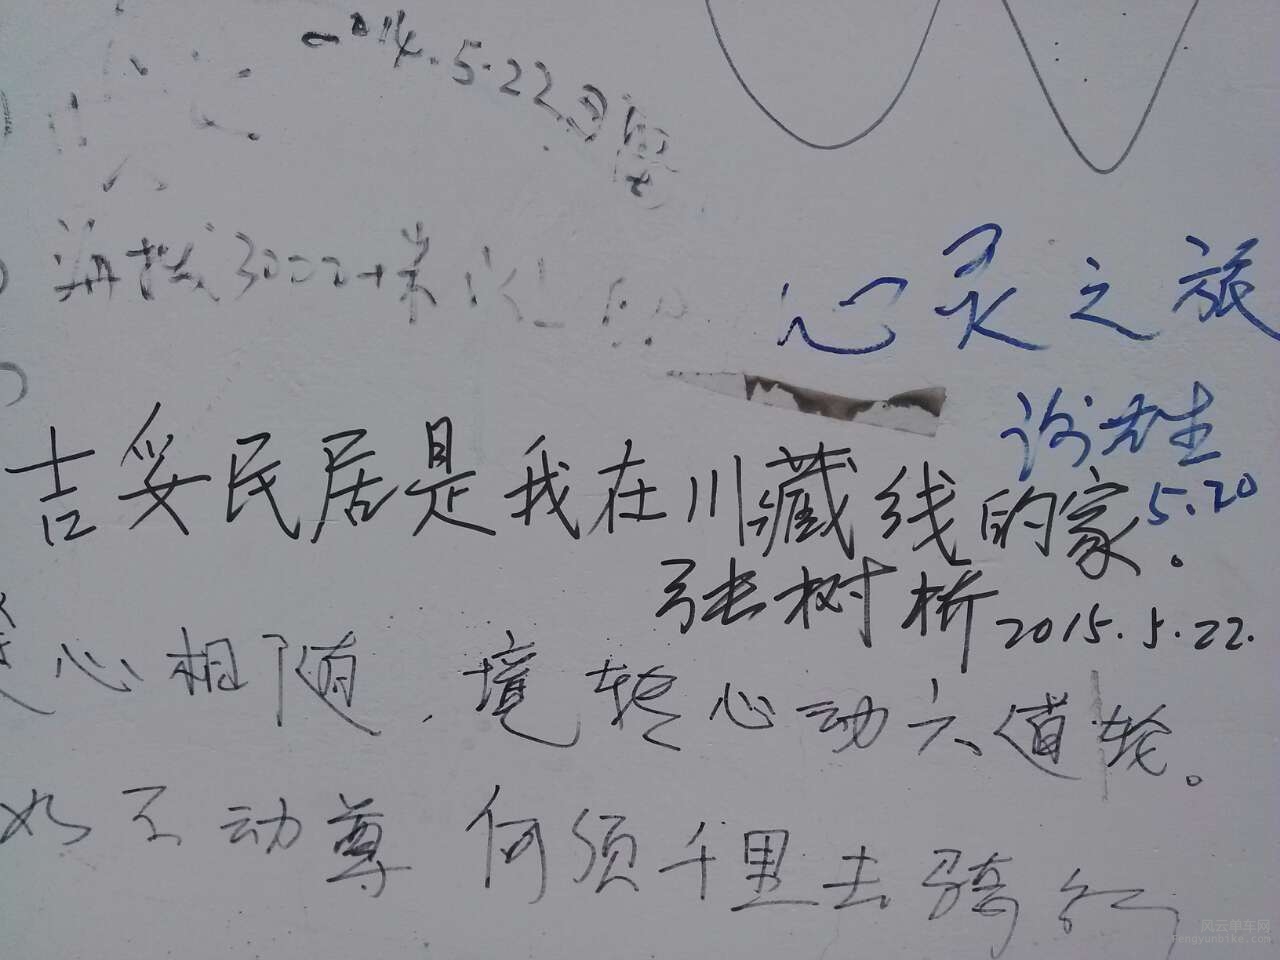 14.5.22日
海拔3000+米
心灵之旅
谢先生
5.20
吉妥民居是我在川藏线的家。
张树桥 2015.5.22.
心相随，境转心动六道轮。
如不动尊 何须千里去骑行
风云单车网
Fengyunbike.com